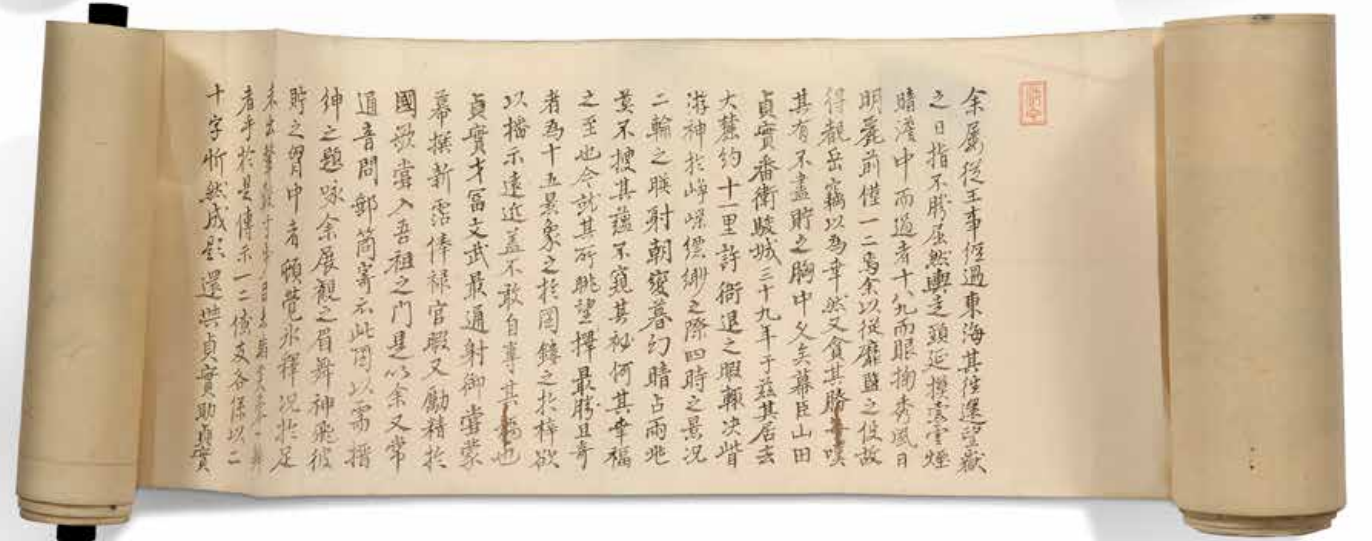 余属從王事經過東海其往還望嶽
之日指不勝屈然輿走頭延攬雲煙
晴澹中而過者十九而眼掬秀風日
明麗前僅一二焉余以從靡盬之役故
得覩岳竊以為幸然又貪其勝
其有不盡貯之胸中久矣幕臣山田
貞實番衛駿城三十九年于茲其居去
大麓約十里許衙退之暇輒决眥
游神於崢嶸縹緲之際四時之景況
二輪之暎射朝變暮幻晴占雨兆
莫不搜其蘊不窺其祕何其幸福
之至也今就其所眺望擇最勝且奇
者為十五景象之於圖鐫之於梓欲
以播示遠近蓋不敢自專其 也
貞實才富文武最通射御嘗蒙
幕撰新霑俸禄官暇又勵精於
國歌嘗入吾祖之門是以余又常
通音問郵筒寄示此圖以需搢
紳之題咏余展觀之眉舞神飛彼
貯之胸中者頓覺氷釋況於足
未出
者乎於是傳示一二僚友各係以二
十字忻然成影還與貞實助貞實